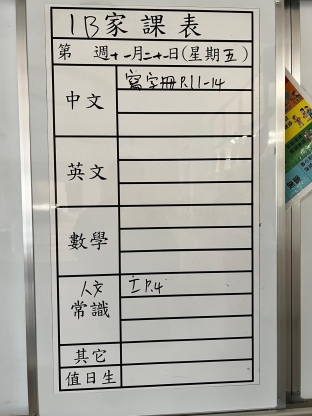 1B家課表
第 週十一月二十一日(星期五)
中文 寫字冊P.11-14
英文
數學
人文
常識 工P.4
其它
值日生